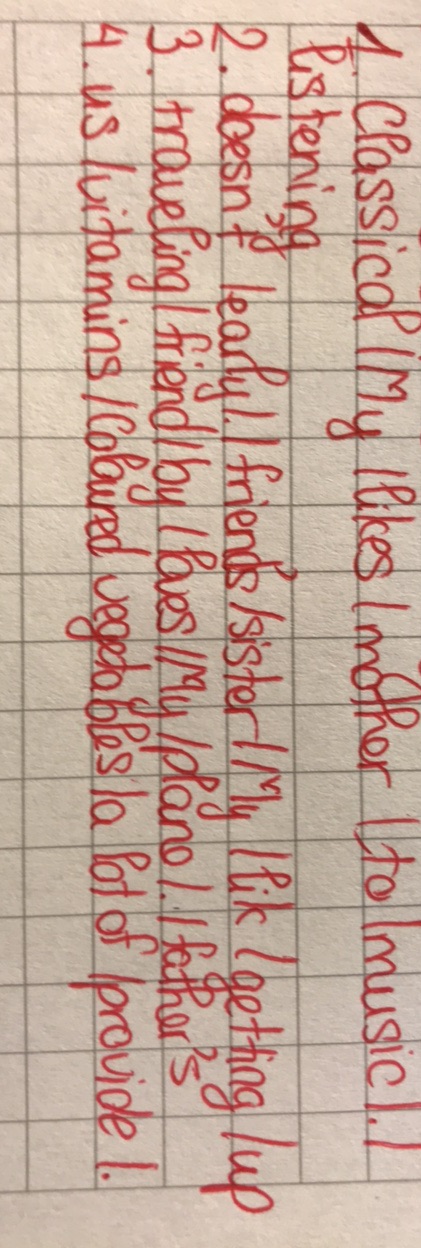 1. Classical / My / likes / mother / to / music /. /
listening
2. doesn't / early /. / friend's / sister / My / lik / getting / up
3. traveling / friend / by / loves / My / plano /. / father's
4. us / vitamins / Coloured vegetables / a lot of / provide /.